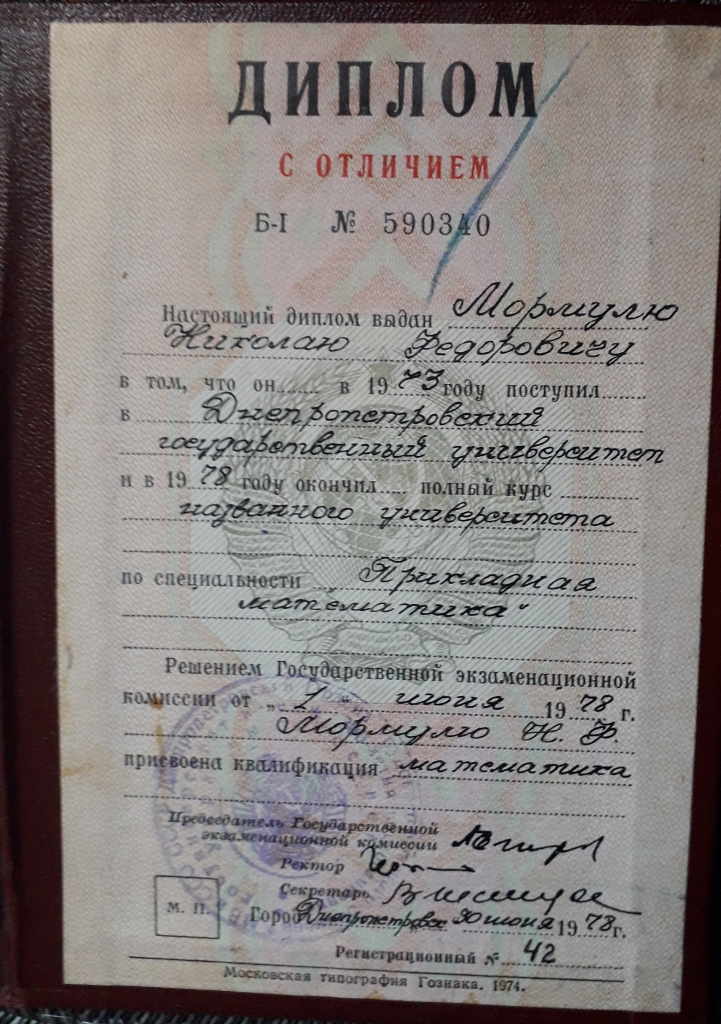 ДИПЛОМ
С ОТЛИЧИЕМ
Б-I № 590340
Настоящий диплом выдан Мормулю
Николаю Федоровичу
в том, что он...... в 1973 году поступил......
в Днепропетровский
государственный университет
и в 1978 году окончил.... полный курс
названного университета
по специальности „Прикладная
математика"
Решением Государственной экзаменационной
комиссии от „1" июня 1978 г.
Мормулю Н. Ф.
присвоена квалификация математика
Председатель Государственной
экзаменационной комиссии
Ректор
Секретарь
М. П.
Город Днепропетровск 30 июня 1978 г.
Регистрационный № 42
Московская типография Гознака. 1974.